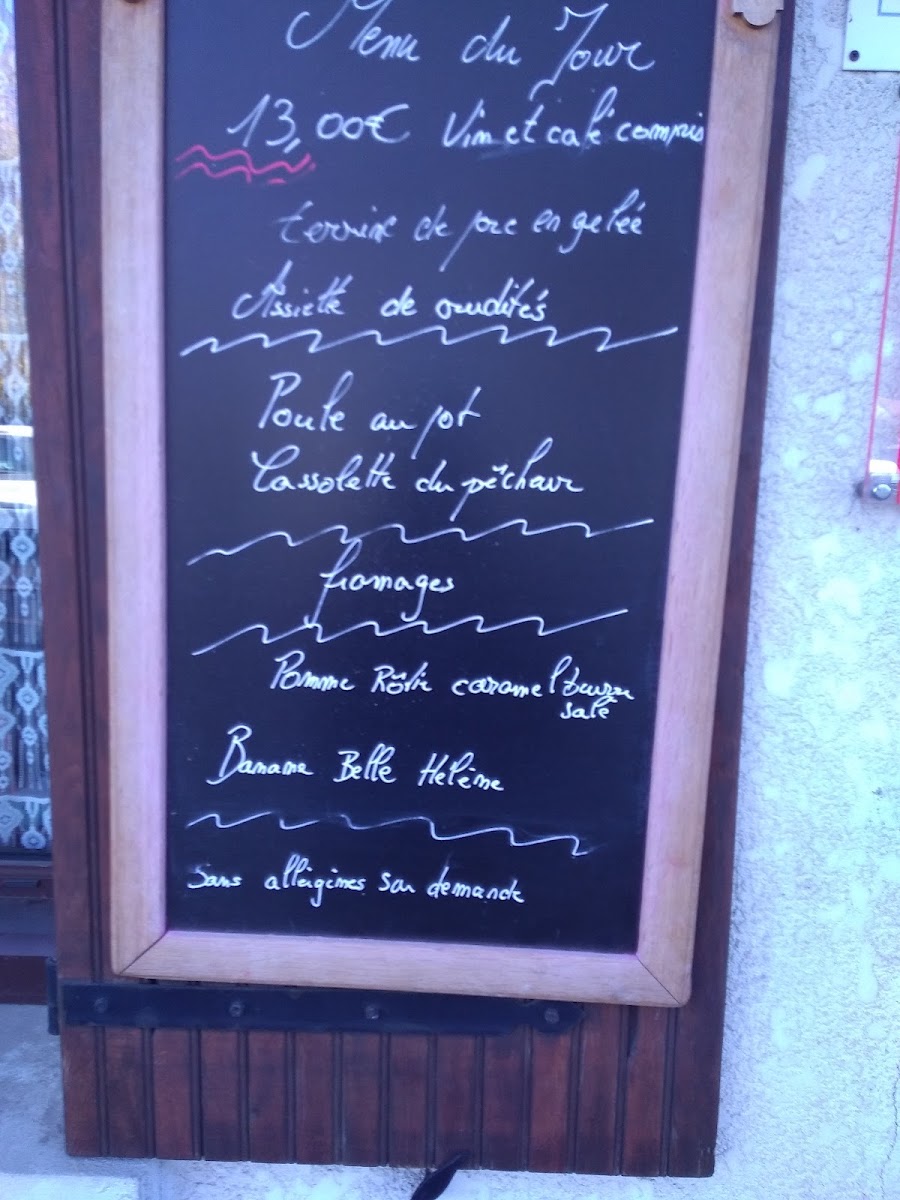 Menu du Jour
13,00€ Vin et café compris
terrine de porc en gelée
Assiette de crudités
Poule au pot
Cassolette du pêcheur
fromages
Pomme Rôtie caramel beurre
salé
Banane Belle Hélène
Sans allérgènes sur demande